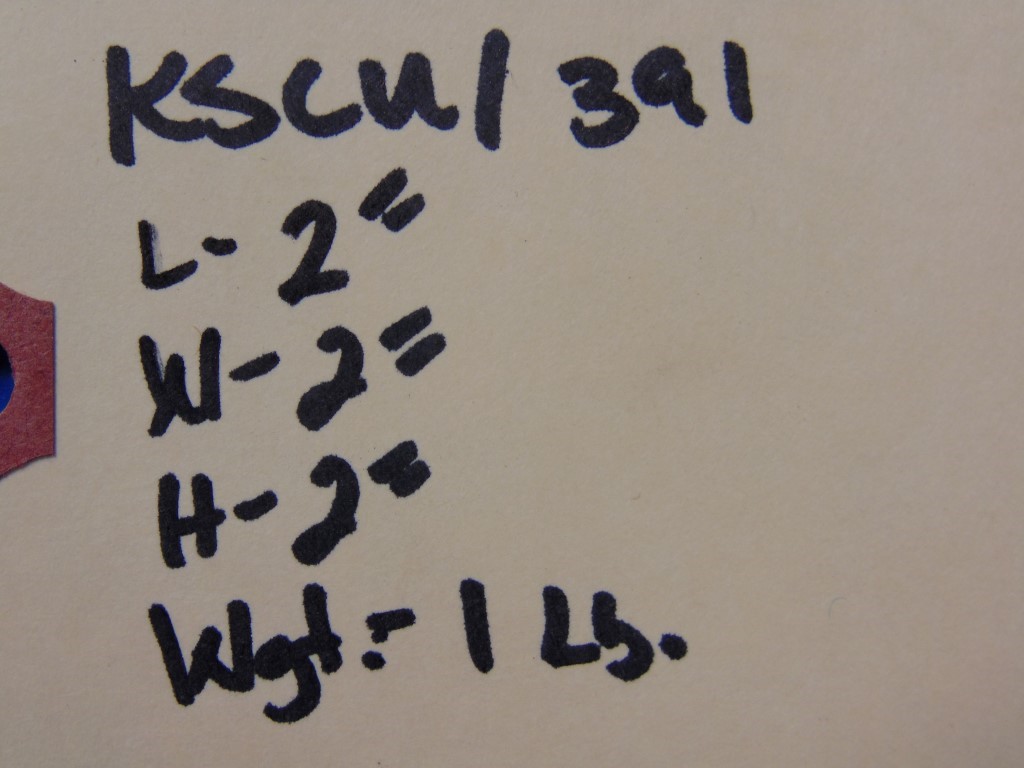 KSCU/391
L- 2"
W- 2"
H- 2"
Wgt:- 1 Lb.